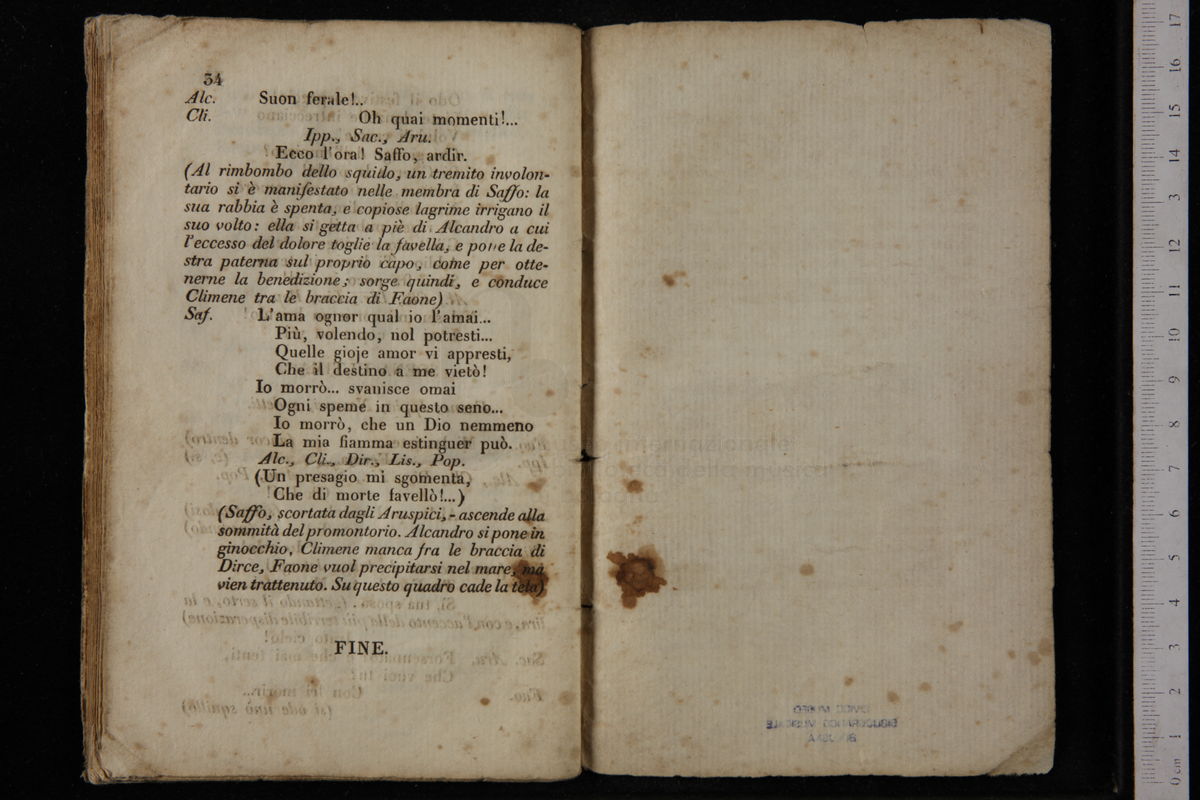 34
Alc. Suon ferale!..
Cli. Oh quai momenti!...
Ipp., Sac., Aru.
Ecco l'ora! Saffo, ardir.
(Al rimbombo dello squillo, un tremito involon-
tario si è manifestato nelle membra di Saffo: la
sua rabbia è spenta, e copiose lagrime irrigano il
suo volto: ella si getta a piè di Alcandro a cui
l'eccesso del dolore toglie la favella, e pone la de-
stra paterna sul proprio capo, come per otte-
nerne la benedizione; sorge quindi, e conduce
Climene tra le braccia di Faone)
Saf. L'ama ognor qual io l'amai...
Più, volendo, nol potresti...
Quelle gioje amor vi appresti,
Che il destino a me vietò!
Io morrò... svanisce omai
Ogni speme in questo seno...
Io morrò, che un Dio nemmeno
La mia fiamma estinguer può.
Alc., Cli., Dir., Lis., Pop.
(Un presagio mi sgomenta,
Che di morte favellò!...)
(Saffo, scortata dagli Aruspici, ascende alla
sommità del promontorio. Alcandro si pone in
ginocchio, Climene manca fra le braccia di
Dirce, Faone vuol precipitarsi nel mare, ma
vien trattenuto. Su questo quadro cade la tela)
FINE.
CIVICO MUSEO
BIBLIOGRAFICO MUSICALE
0 cm 1 2 3 4 5 6 7 8 9 10 11 12 13 14 15 16 17